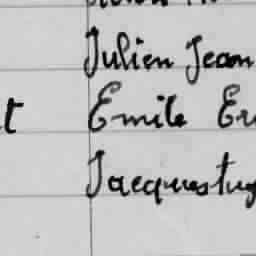 Julien Jean
t Emile
Jacques